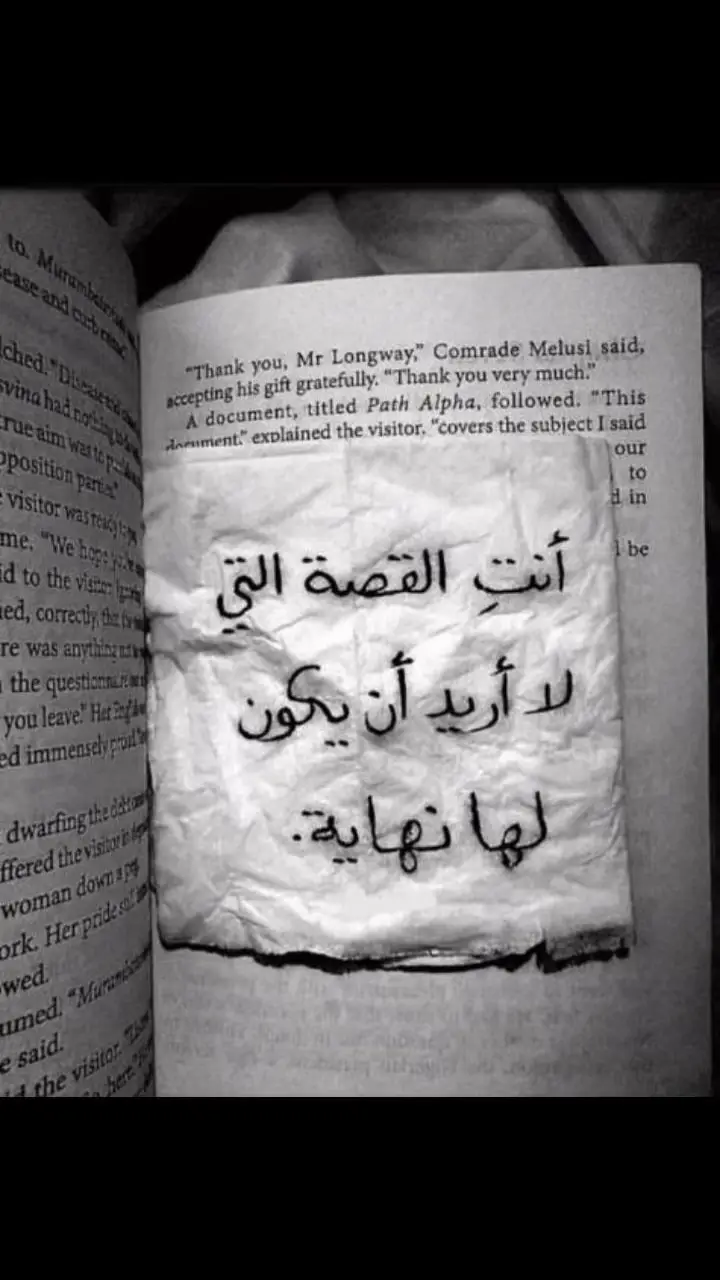 to. Murambatsvina
ease and curb crime
lched. "Disease and
svina had nothing to do
true aim was to
opposition parties."
e visitor was ready to
me. "We hope you've
id to the visitor
ned, correctly, that the
re was anything not
n the questionnaire
you leave." Her
ed immensely proud
dwarfing the
ffered the visitor in
woman down a peg
ork. Her pride
owed.
umed. "Murambatsvina
e said.
the visitor.
here."
"Thank you, Mr Longway," Comrade Melusi said,
accepting his gift gratefully. "Thank you very much."
A document, titled Path Alpha, followed. "This
document," explained the visitor, "covers the subject I said
our
to
d in
l be
أنتِ القصة التي
لا أريد أن يكون
لها نهاية.